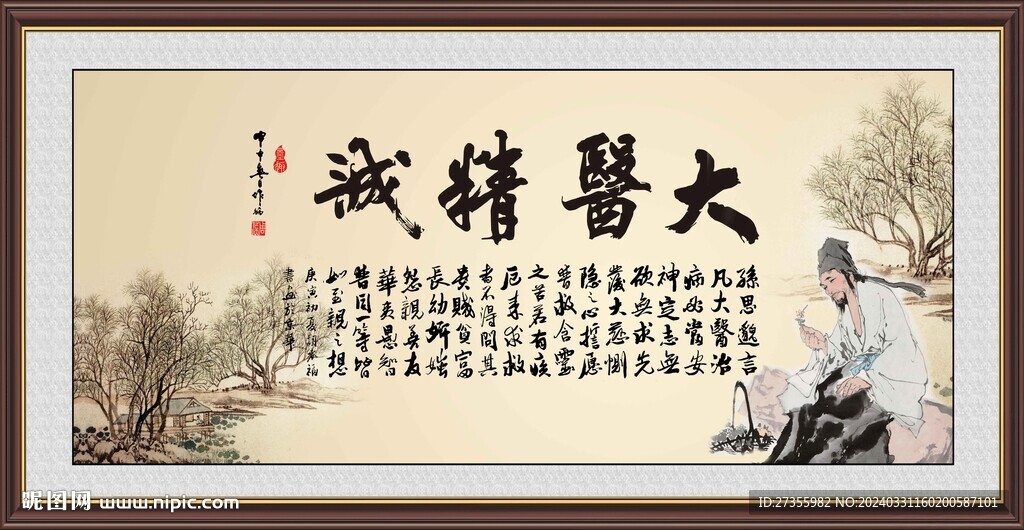 大醫精誠
孫思邈言
凡大醫治
病必當安
神定志無
欲無求先
發大慈惻
隐之心誓愿
普救含靈
之苦若有疾
厄来求救
者不得問其
貴賤貧富
長幼妍媸
怨親善友
華夷愚智
普同一等皆
如至親之想
庚寅初夏
書於京華
昵图网 www.nipic.com
ID:27355982 NO:20240331160200587101